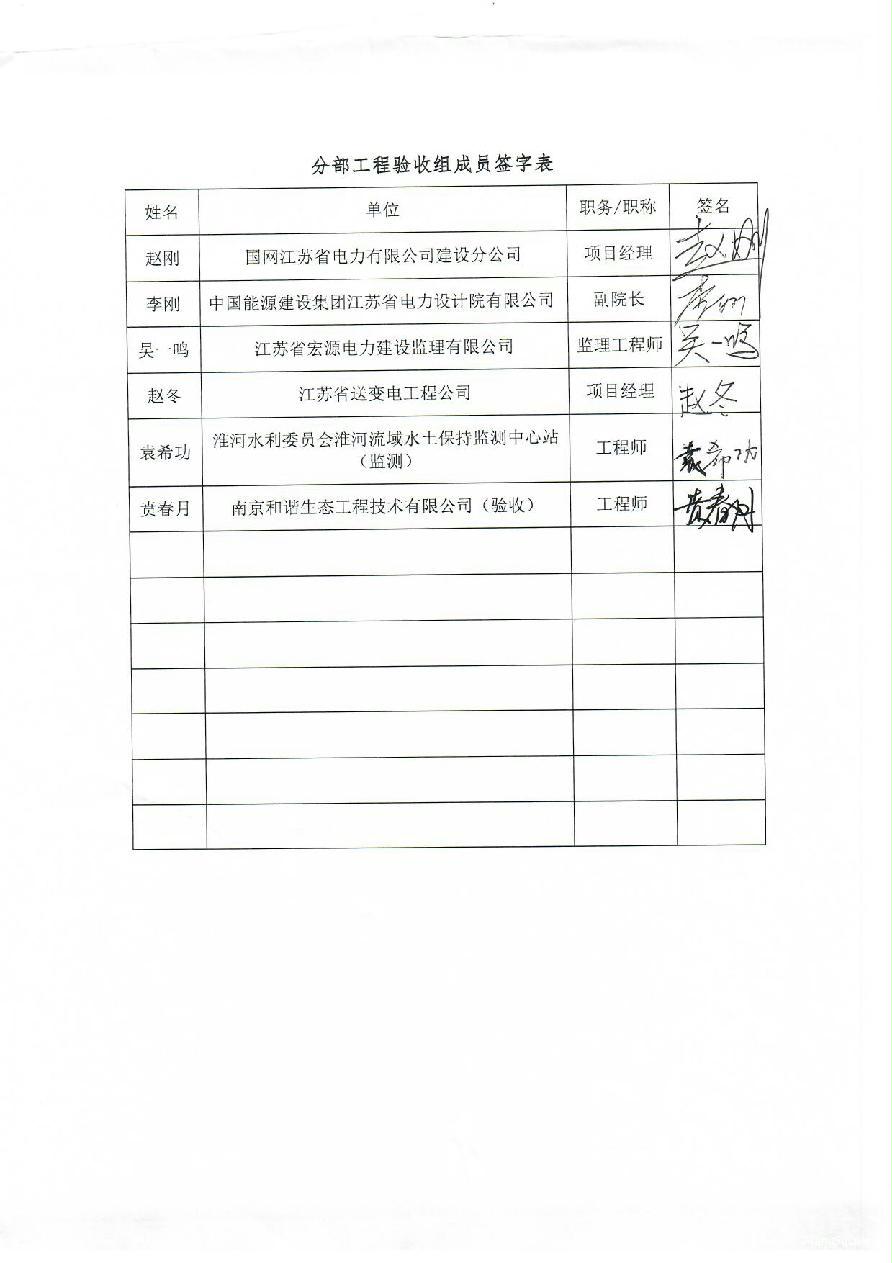 分部工程验收组成员签字表
姓名 单位 职务/职称 签名
赵刚 国网江苏省电力有限公司建设分公司 项目经理 赵刚
李刚 中国能源建设集团江苏省电力设计院有限公司 副院长 李刚
吴一鸣 江苏省宏源电力建设监理有限公司 监理工程师 吴一鸣
赵冬 江苏省送变电工程公司 项目经理 赵冬
袁希功 淮河水利委员会淮河流域水土保持监测中心站
（监测） 工程师 袁希功
贡春月 南京和谐生态工程技术有限公司（验收） 工程师 春月